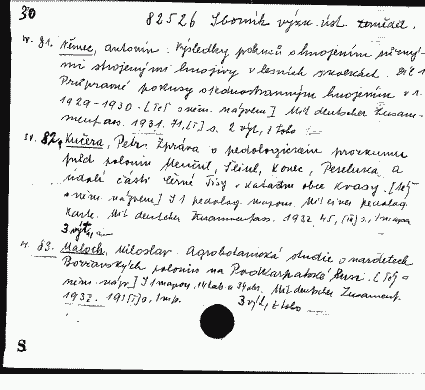 30
82526 Sborník výzk. úst. zeměděl.
sv. 81. Němec, Antonín. Výsledky pokusů o hnojením různý-
mi strojenými hnojivy v lesních školkách. Díl 1
Průpravné pokusy s jednostranným hnojením v r.
1929-1930. [Též s něm. názvem] Mit deutscher Zusam-
menfass. 1931. 71, [5] s. 2 výt., z toho
sv. 82. Kučera, Petr. Zpráva o pedologickém průzkumu
půd polonin Menčul, Šešul, Konec, Peseluka a
údolí části Černé Tisy v katastru obce Kvasy. [Též
s něm. názvem] S 1 pedolog. mapou. Mit einer pedolog.
Karte. Mit deutscher Zusammenfass. 1932. 45, s., 1 mapa
3 výt.,
sv. 83. Maloch, Miloslav. Agrobotanická studie o nardetech
Boržavských polonin na Podkarpatské Rusi. [Též s
něm. názv.] S 1 mapou, 14 tab. a Mit deutscher Zusammenf.
1932. s., 1 mp. 3 výt., z toho
S